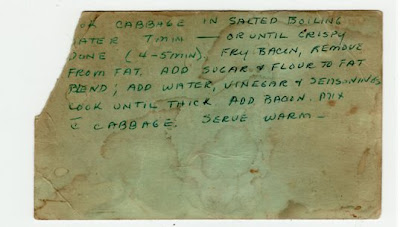 OK CABBAGE IN SALTED BOILING
ATER 7 MIN — OR UNTIL CRISPY
DONE (4-5 MIN) FRY BACON, REMOVE
FROM FAT. ADD SUGAR & FLOUR TO FAT
BLEND; ADD WATER, VINEGAR & SEASONINGS
COOK UNTIL THICK ADD BACON. MIX
C̄ CABBAGE. SERVE WARM —